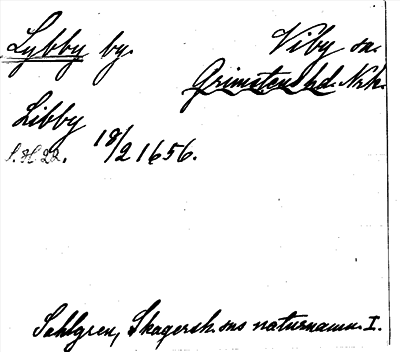 Lybby by. Viby sn.
Grimstens hd. Nrk.
Libby
S.H. 22. 18/2 1656.
Sahlgren, Skagersh. sns naturnamn I.